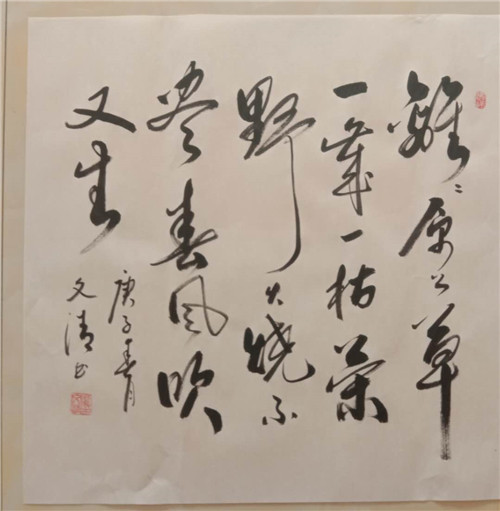 離〻原上草
一歲一枯榮
野火燒不
尽春風吹
又生
庚子春月
文清书